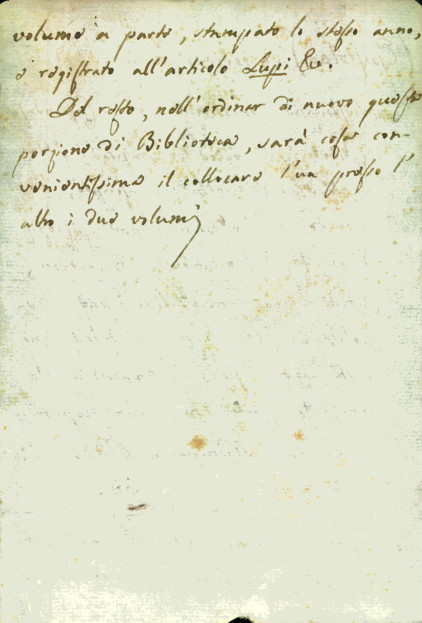 volume a parte, stampato lo stesso anno,
e registrato all'articolo Lupi &c.
Del resto, nell'ordinar di nuovo questa
porzione di Biblioteca, sarà cosa con-
venientissima il collocare l'un presso l'
altro i due volumi